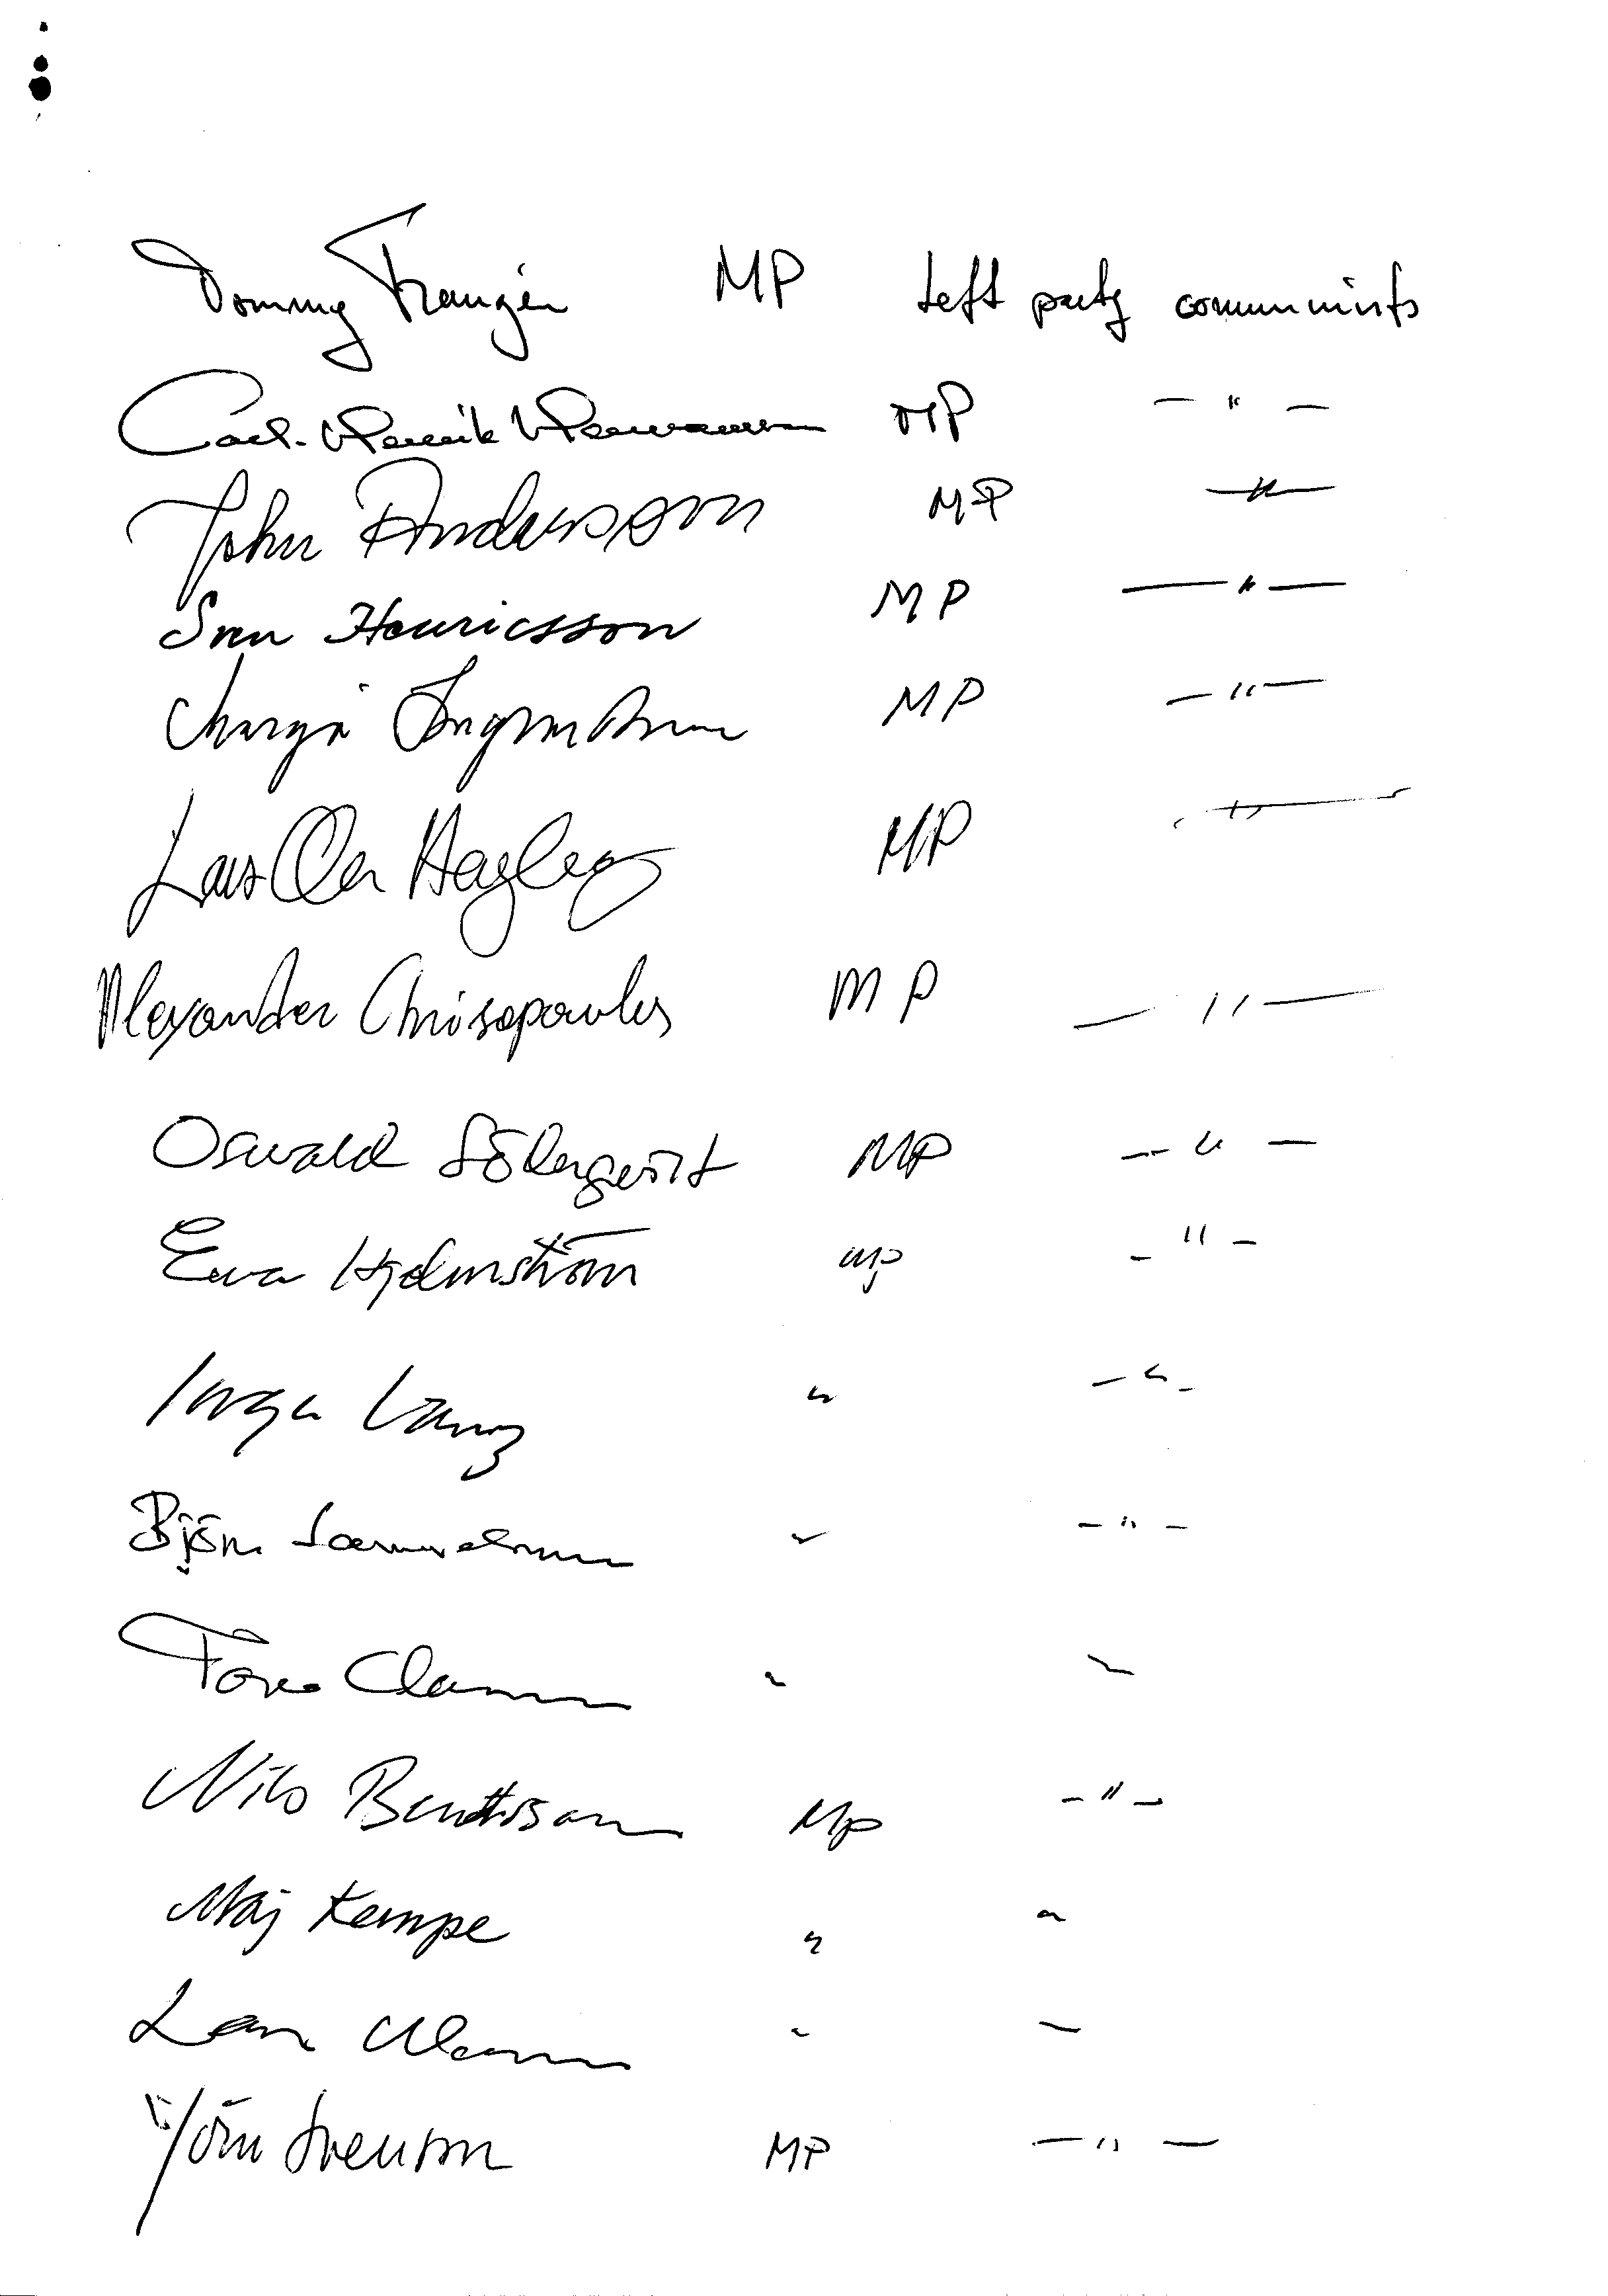 Tommy Franzén MP Left party communists
Carl-Henrik Hermansson MP — " —
John Andersson MP — " —
Sven Henricsson MP — " —
Marga Ingvardsson MP — " —
Lars-Ove Hagberg MP — " —
Alexander Chrisopoulos MP — " —
Oswald Söderqvist MP — " —
Eva Hjelmström MP — " —
Inga Lantz " — " —
Björn Samuelson " — " —
Tore Claeson " "
Nils Berndtson MP — " —
Maj Kempe " "
Lars " "
Jörn Svensson MP — " —